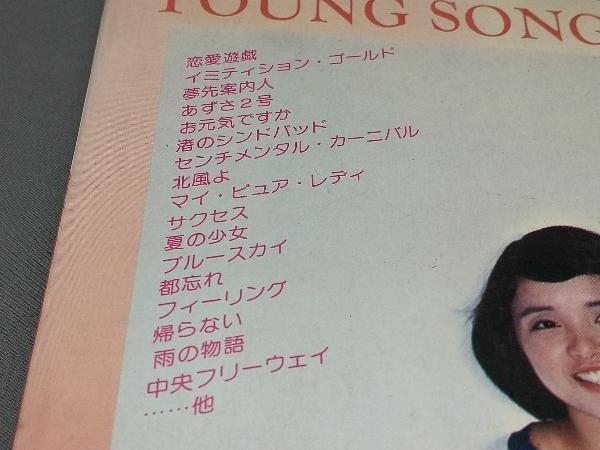 YOUNG SONG
恋愛遊戯
イミティション・ゴールド
夢先案内人
あずさ2号
お元気ですか
渚のシンドバッド
センチメンタル・カーニバル
北風よ
マイ・ピュア・レディ
サクセス
夏の少女
ブルースカイ
都忘れ
フィーリング
帰らない
雨の物語
中央フリーウェイ
……他